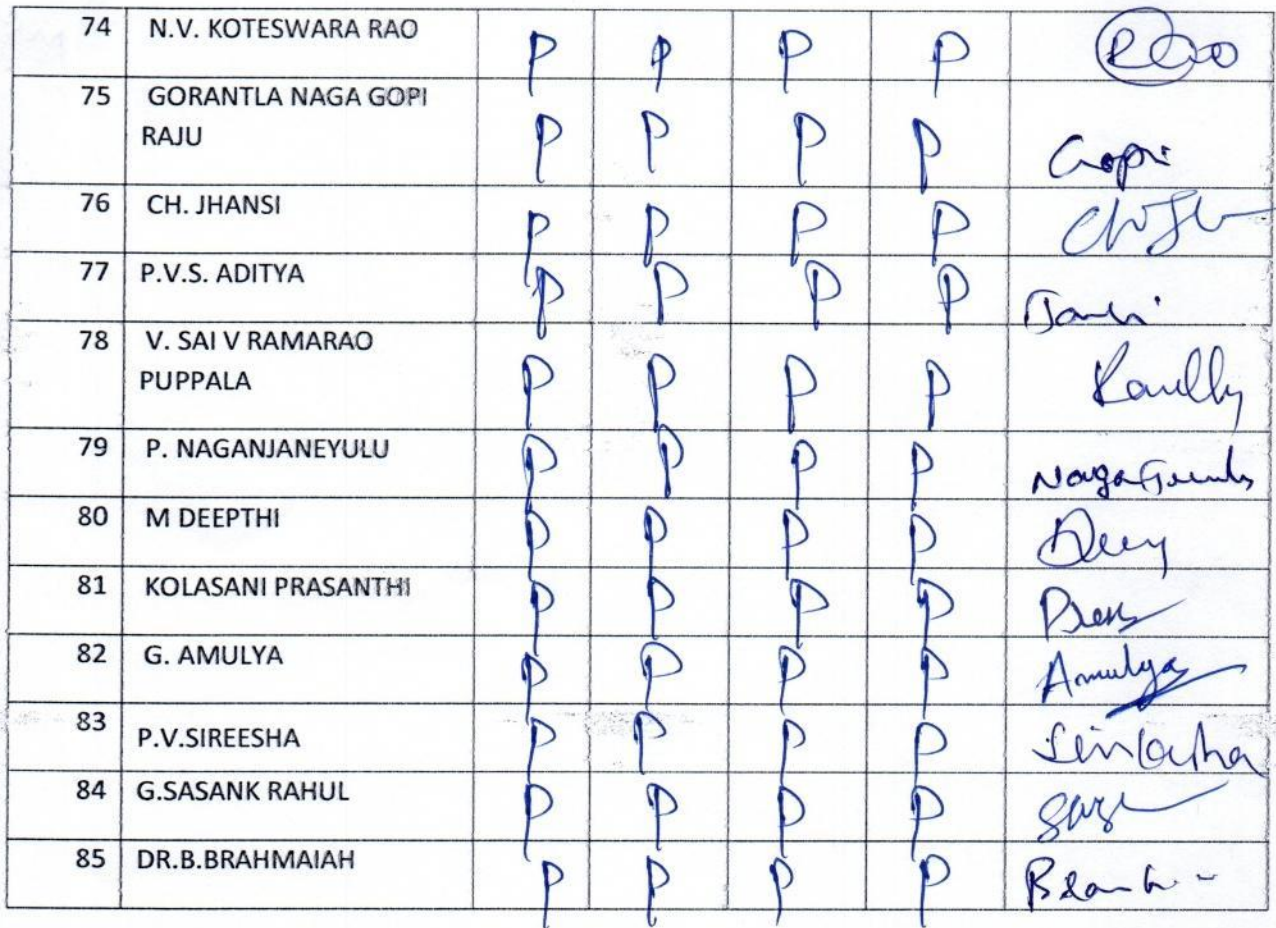 74 N.V. KOTESWARA RAO P P P P Rao
75 GORANTLA NAGA GOPI
RAJU P P P P Gopi
76 CH. JHANSI P P P P
77 P.V.S. ADITYA P P P P
78 V. SAI V RAMARAO
PUPPALA P P P P
79 P. NAGANJANEYULU P P P P
80 M DEEPTHI P P P P
81 KOLASANI PRASANTHI P P P P
82 G. AMULYA P P P P Amulya
83 P.V.SIREESHA P P P P
84 G.SASANK RAHUL P P P P
85 DR.B.BRAHMAIAH P P P P